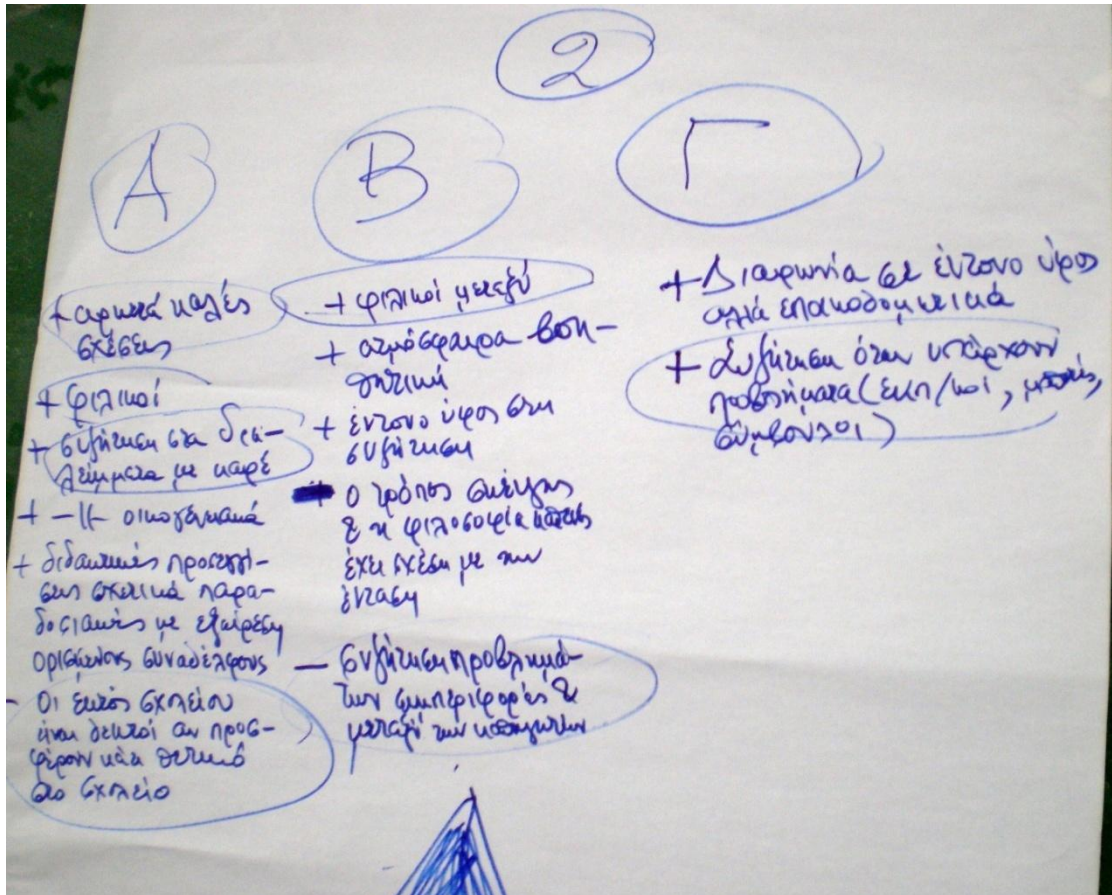 2
Α
+ αρκετά καλές
σχέσεις
+ φιλικοί
+ συζήτηση στα δια-
λείμματα με καφέ
+ –//– οικογενειακά
+ διδακτικές προσεγγί-
σεις σχετικά παρα-
δοσιακές με εξαίρεση
ορισμένους συναδέλφους
- Οι εκτός σχολείου
είναι δεκτοί αν προσ-
φέρουν κάτι θετικό
στο σχολείο
Β
+ φιλικοί μεταξύ
+ ατμόσφαιρα βοη-
θητική
+ έντονο ύφος στη
συζήτηση
+ Ο τρόπος σκέψης
& η φιλοσοφία
έχει σχέση με την
ένταση
– συζήτηση προβλημά-
των συμπεριφοράς &
μεταξύ των καθηγητών
Γ
+ Διαφωνία σε έντονο ύφος
αλλά εποικοδομητικά
+ Συζήτηση όταν υπάρχουν
προβλήματα (εκπ/κοί, μαθητές,
σύμβουλοι)